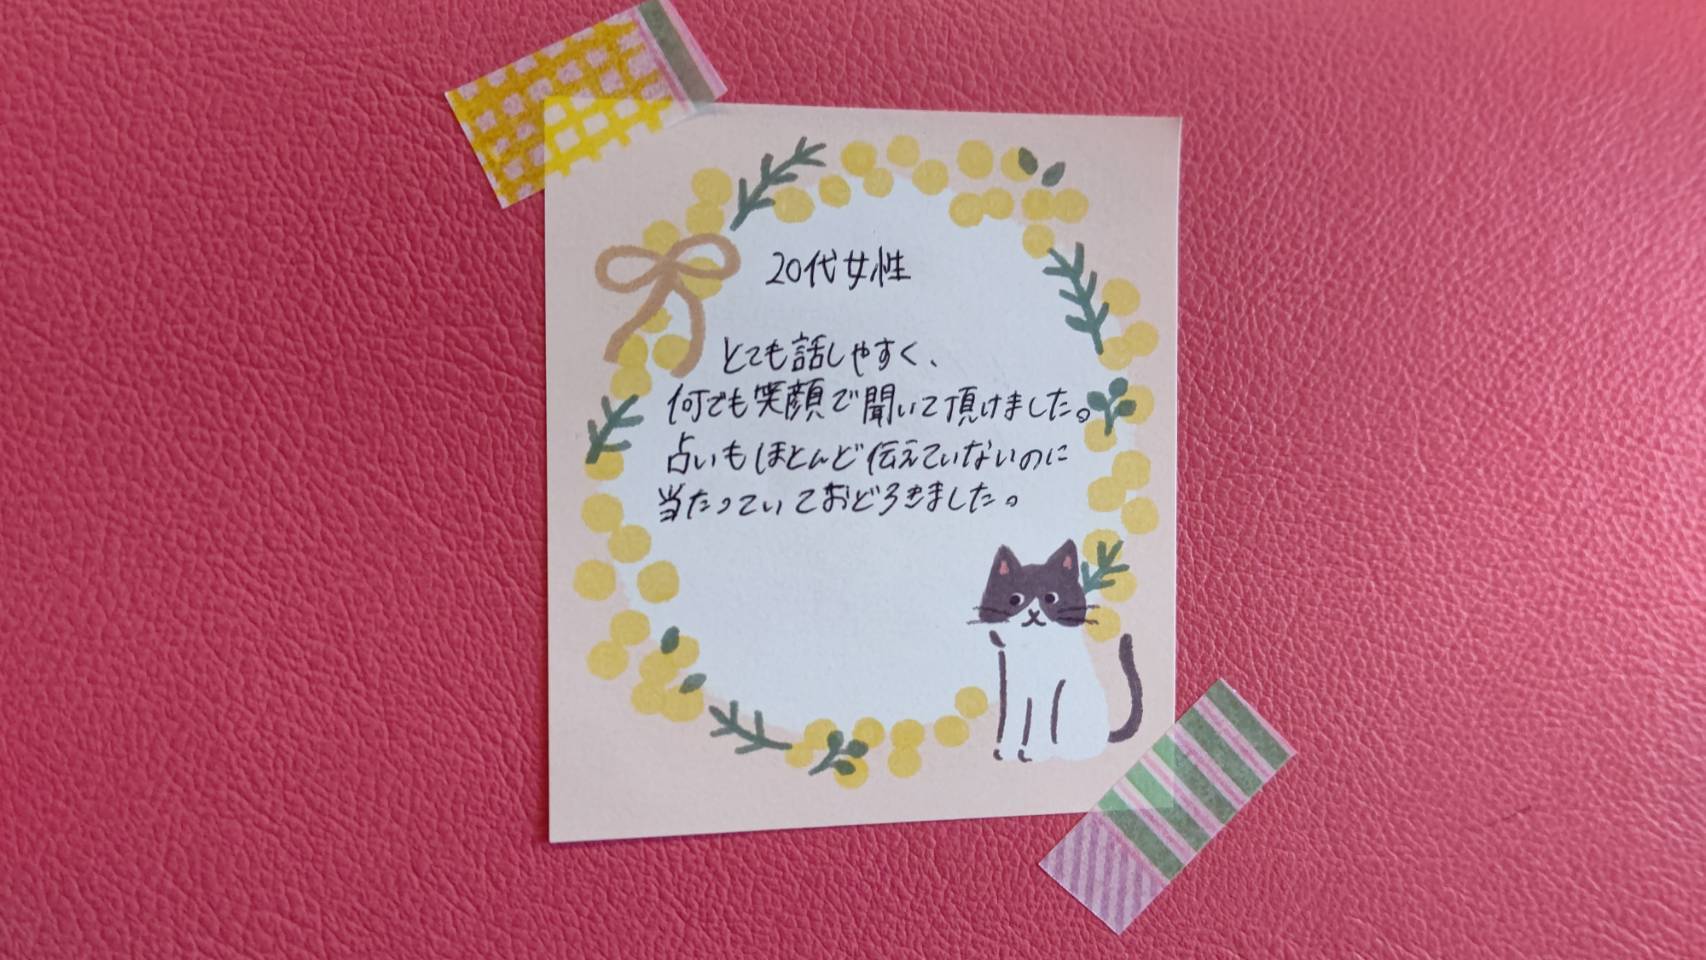 20代女性
とても話しやすく、
何でも笑顔で聞いて頂けました。
占いもほとんど伝えていないのに
当たっていておどろきました。